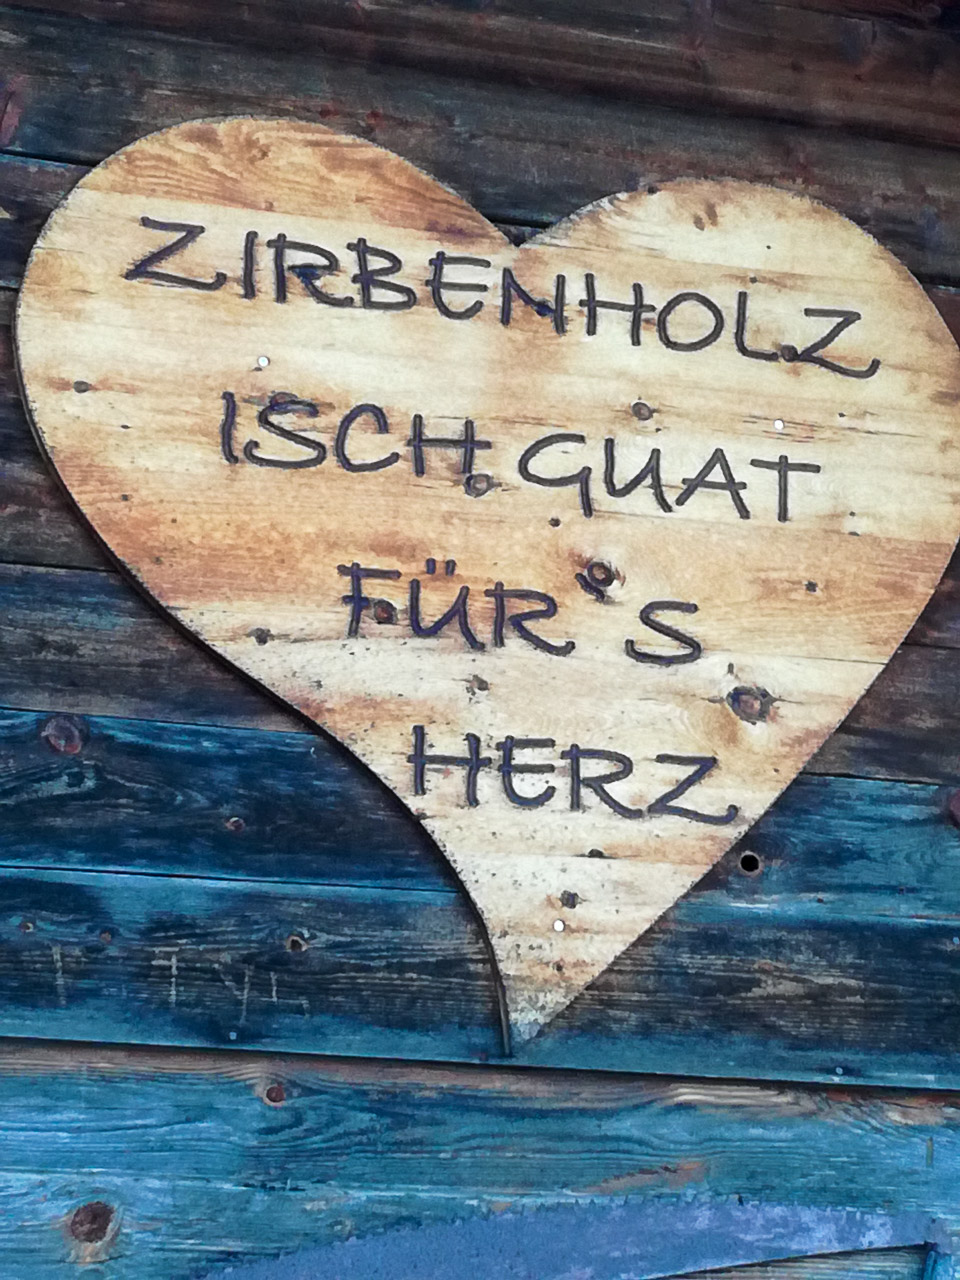 ZIRBENHOLZ
ISCH GUAT
FÜR`S
HERZ